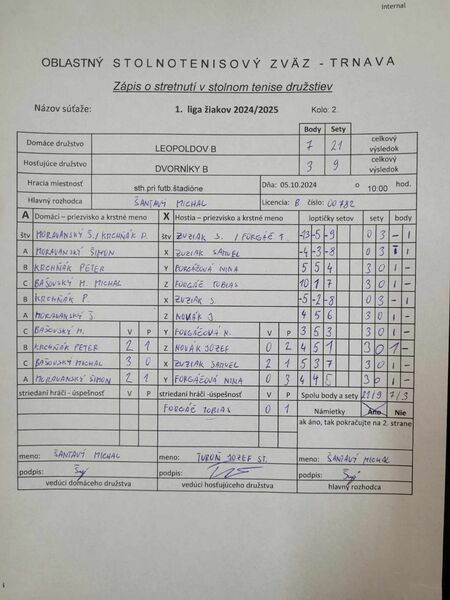 Internal
OBLASTNÝ STOLNOTENISOVÝ ZVÄZ - TRNAVA
Zápis o stretnutí v stolnom tenise družstiev
Názov súťaže: 1. liga žiakov 2024/2025 Kolo: 2.
Body Sety
Domáce družstvo LEOPOLDOV B 7 21 celkový výsledok
Hosťujúce družstvo DVORNÍKY B 3 9 celkový výsledok
Hracia miestnosť sth.pri futb.štadióne Dňa: 05.10.2024 o 10:00 hod.
Hlavný rozhodca ŠANTAVÝ MICHAL Licencia: B číslo: 00782
A Domáci – priezvisko a krstné meno X Hostia – priezvisko a krstné meno loptičky setov sety body
štv MORAVANSKÝ Š./KRCHŇÁK P. štv ZUZIAK S. / FORGÁČ T. -13 -5 -9 0 3 - 1
A MORAVANSKÝ ŠIMON X ZUZIAK SAMUEL -4 -3 -8 0 3 - 1
B KRCHŇÁK PETER Y FORGÁČOVÁ NINA 5 5 4 3 0 1 -
C BAŠOVSKÝ M. MICHAL Z FORGÁČ TOBIAS 10 1 7 3 0 1 -
B KRCHŇÁK P. X ZUZIAK S. -5 -2 -8 0 3 - 1
A MORAVANSKÝ Š. Z NOVÁK J. 4 5 6 3 0 1 -
C BAŠOVSKÝ M. V P Y FORGÁČOVÁ N. V P 3 5 3 3 0 1 -
B KRCHŇÁK PETER 2 1 Z NOVÁK JOZEF 0 2 4 5 1 3 0 1 -
C BAŠOVSKÝ MICHAL 3 0 X ZUZIAK SAMUEL 2 1 5 3 7 3 0 1 -
A MORAVANSKÝ ŠIMON 2 1 Y FORGÁČOVÁ NINA 0 3 4 4 5 3 0 1 -
striedaní hráči - úspešnosť V P striedaní hráči - úspešnosť V P Spolu body a sety 21/9 7/3
FORGÁČ TOBIAS 0 1 Námietky Áno Nie
ak áno, tak pokračujte na 2. strane
meno: ŠANTAVÝ MICHAL meno: TUROŇ JOZEF ST. meno: ŠANTAVÝ MICHAL
podpis: podpis: podpis:
vedúci domáceho družstva vedúci hosťujúceho družstva hlavný rozhodca